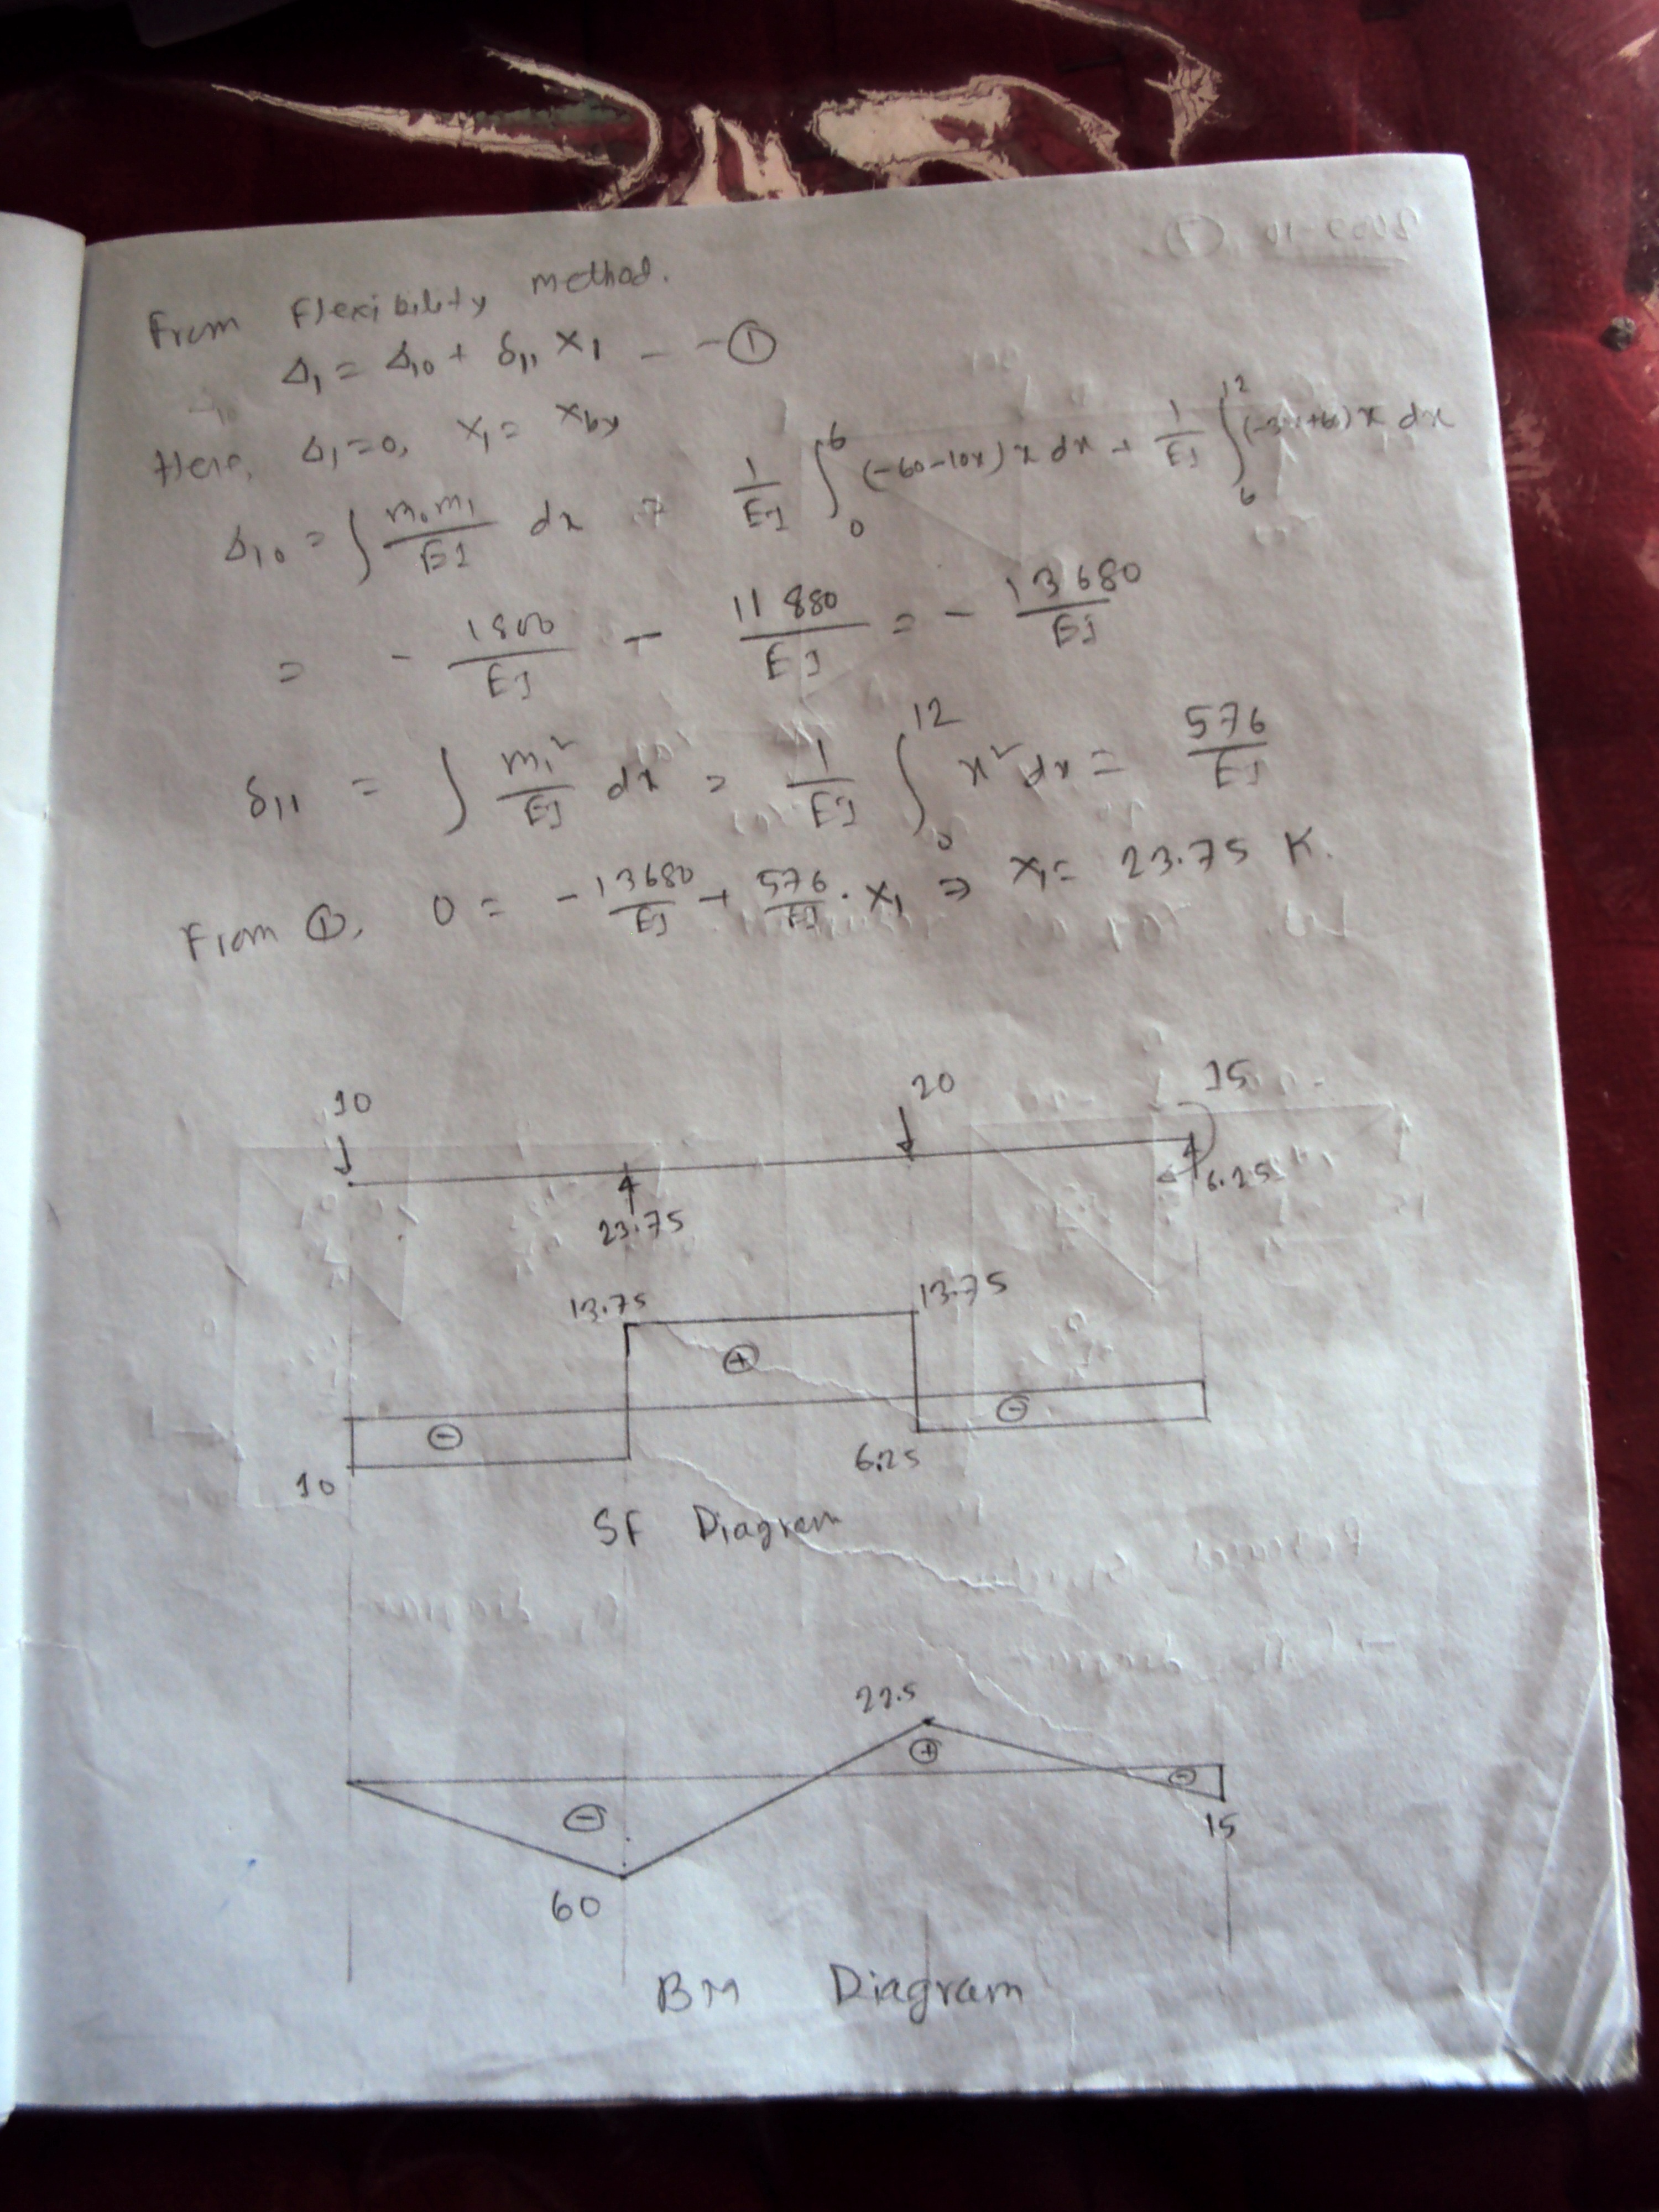 From Flexibility method.
Δ₁ = Δ₁₀ + δ₁₁ X₁ - - ①
Here, Δ₁=0, X₁= Xby
Δ₁₀ = ∫ m₀m₁/EI dx = 1/EI ∫₀⁶ (-60-10x) x dx + 1/EI ∫₆¹² x dx
= - 1800/EI - 11880/EI = - 13680/EI
δ₁₁ = ∫ m₁²/EI dx = 1/EI ∫₀¹² x² dx = 576/EI
From ①, 0 = - 13680/EI + 576/EI . X₁ ⇒ X₁= 23.75 K.
10 20 15
23.75 6.25
13.75 13.75
+
- -
10 6.25
SF Diagram
22.5
+
- -
15
60
BM Diagram